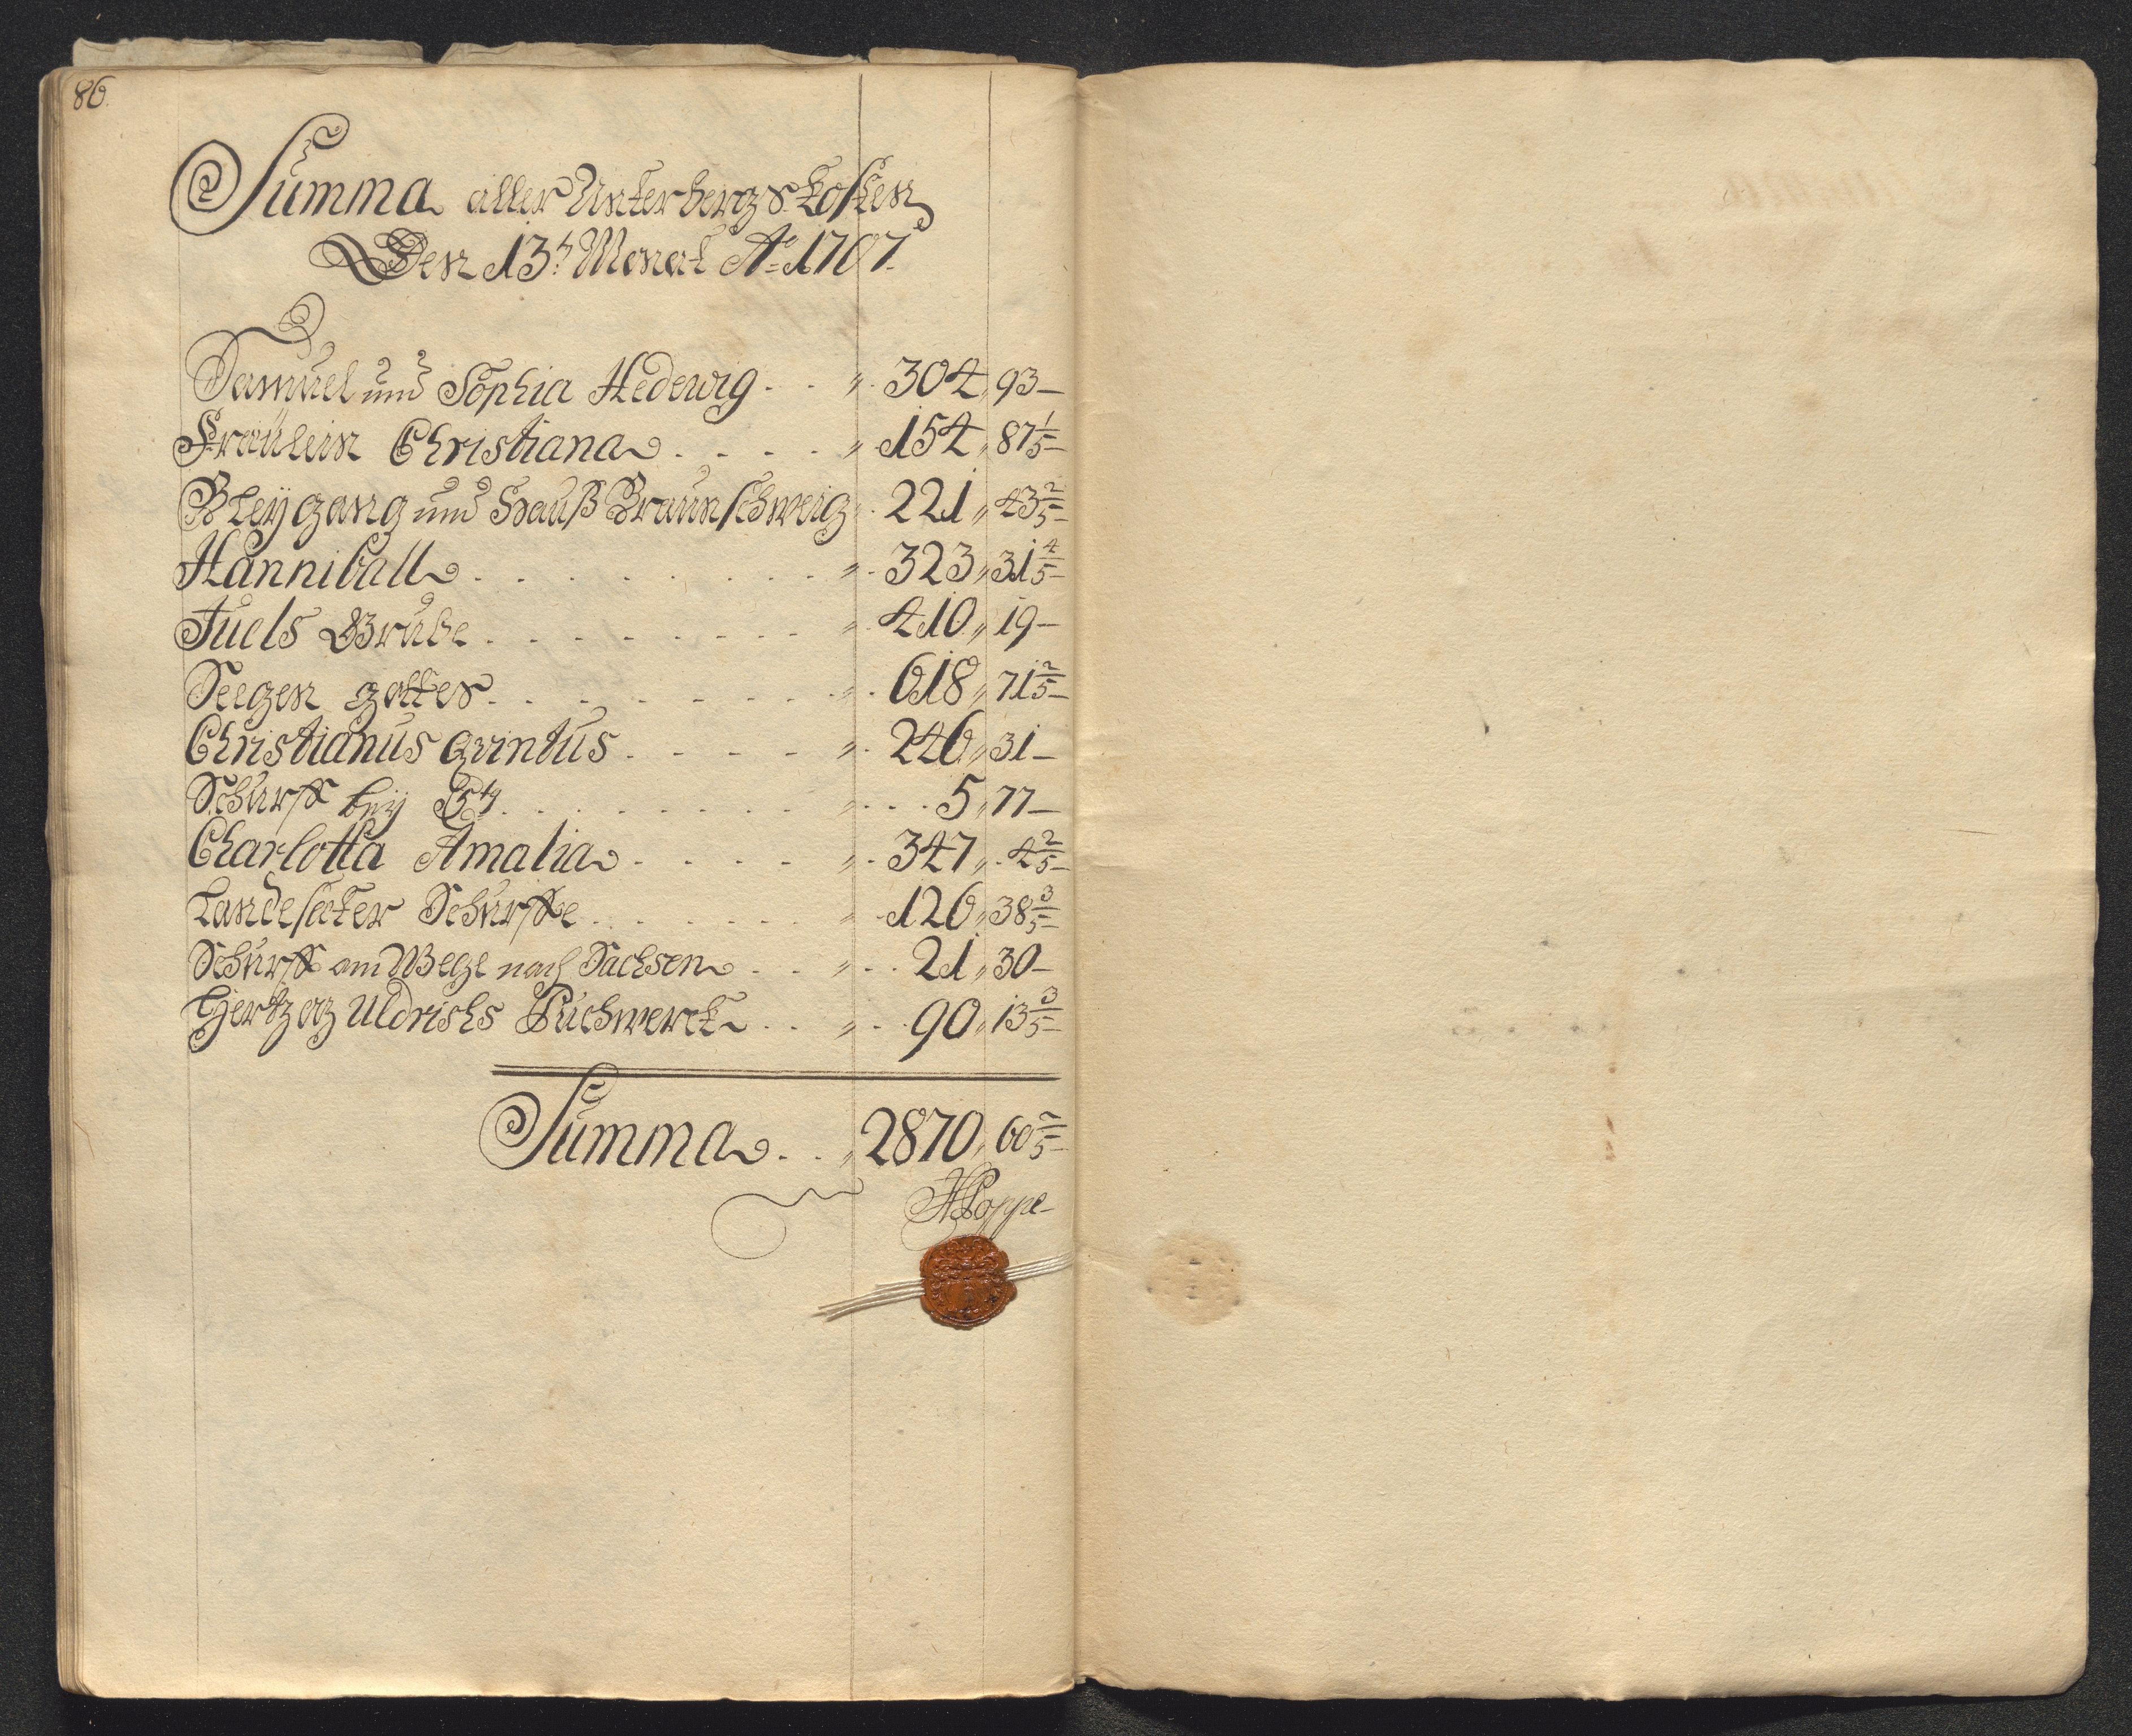 86.
Summa aller Unterbergs Kosten
Den 13t Monat Ao 1707.
Samuel und Sophia Hedewig . . „ . 304 „ 93 –
Fräulein Christiana . . . . „ 154 „ 87 1/5 –
Bleygang und Hauß Braunschweig „ . 221 „ 43 2/5 –
Hanniball . . . . . . . . „ . 323 „ 31 4/5 –
Juels Grube . . . . . . . . „ . 410 „ 19 –
Seegen gottes . . . . . . . . „ . 618 „ 71 2/5 –
Christianus qvintus . . . . „ . 246 „ 31 –
Schurff beÿ . . . . . . . . „ . . . 5 „ 77 –
Charlotta Amalia . . . . „ . 347 „ . 4 2/5 –
Landesecter Schurffe . . . . . . „ . 126 „ 38 3/5 –
Schurff am Wege nach Sachsen . . „ . . 21 „ 30 –
Hertzog Uldrichs Puchwerck . . „ . . 90 „ 13 3/5 –
Summa . . „ 2870 „ 60 2/5 –
HPoppe